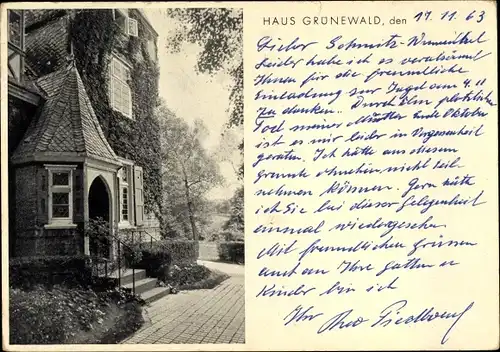 HAUS GRÜNEWALD, den 17. 11. 63
Lieber Schmitz-Winnenthal
Leider habe ich es versäumt
Ihnen für die freundliche
Einladung zur Jagd am 9. 11
zu danken. Durch den plötzlichen
Tod meiner Mutter Ende Oktober
ist es mir leider in Vergessenheit
geraten. Ich hätte aus diesem
Grunde ohnehin nicht teil-
nehmen können. Gern hätte
ich Sie bei dieser Gelegenheit
einmal wiedergesehen.
Mit freundlichen Grüssen
auch an Ihre Gattin u
Kinder bin ich
Ihr